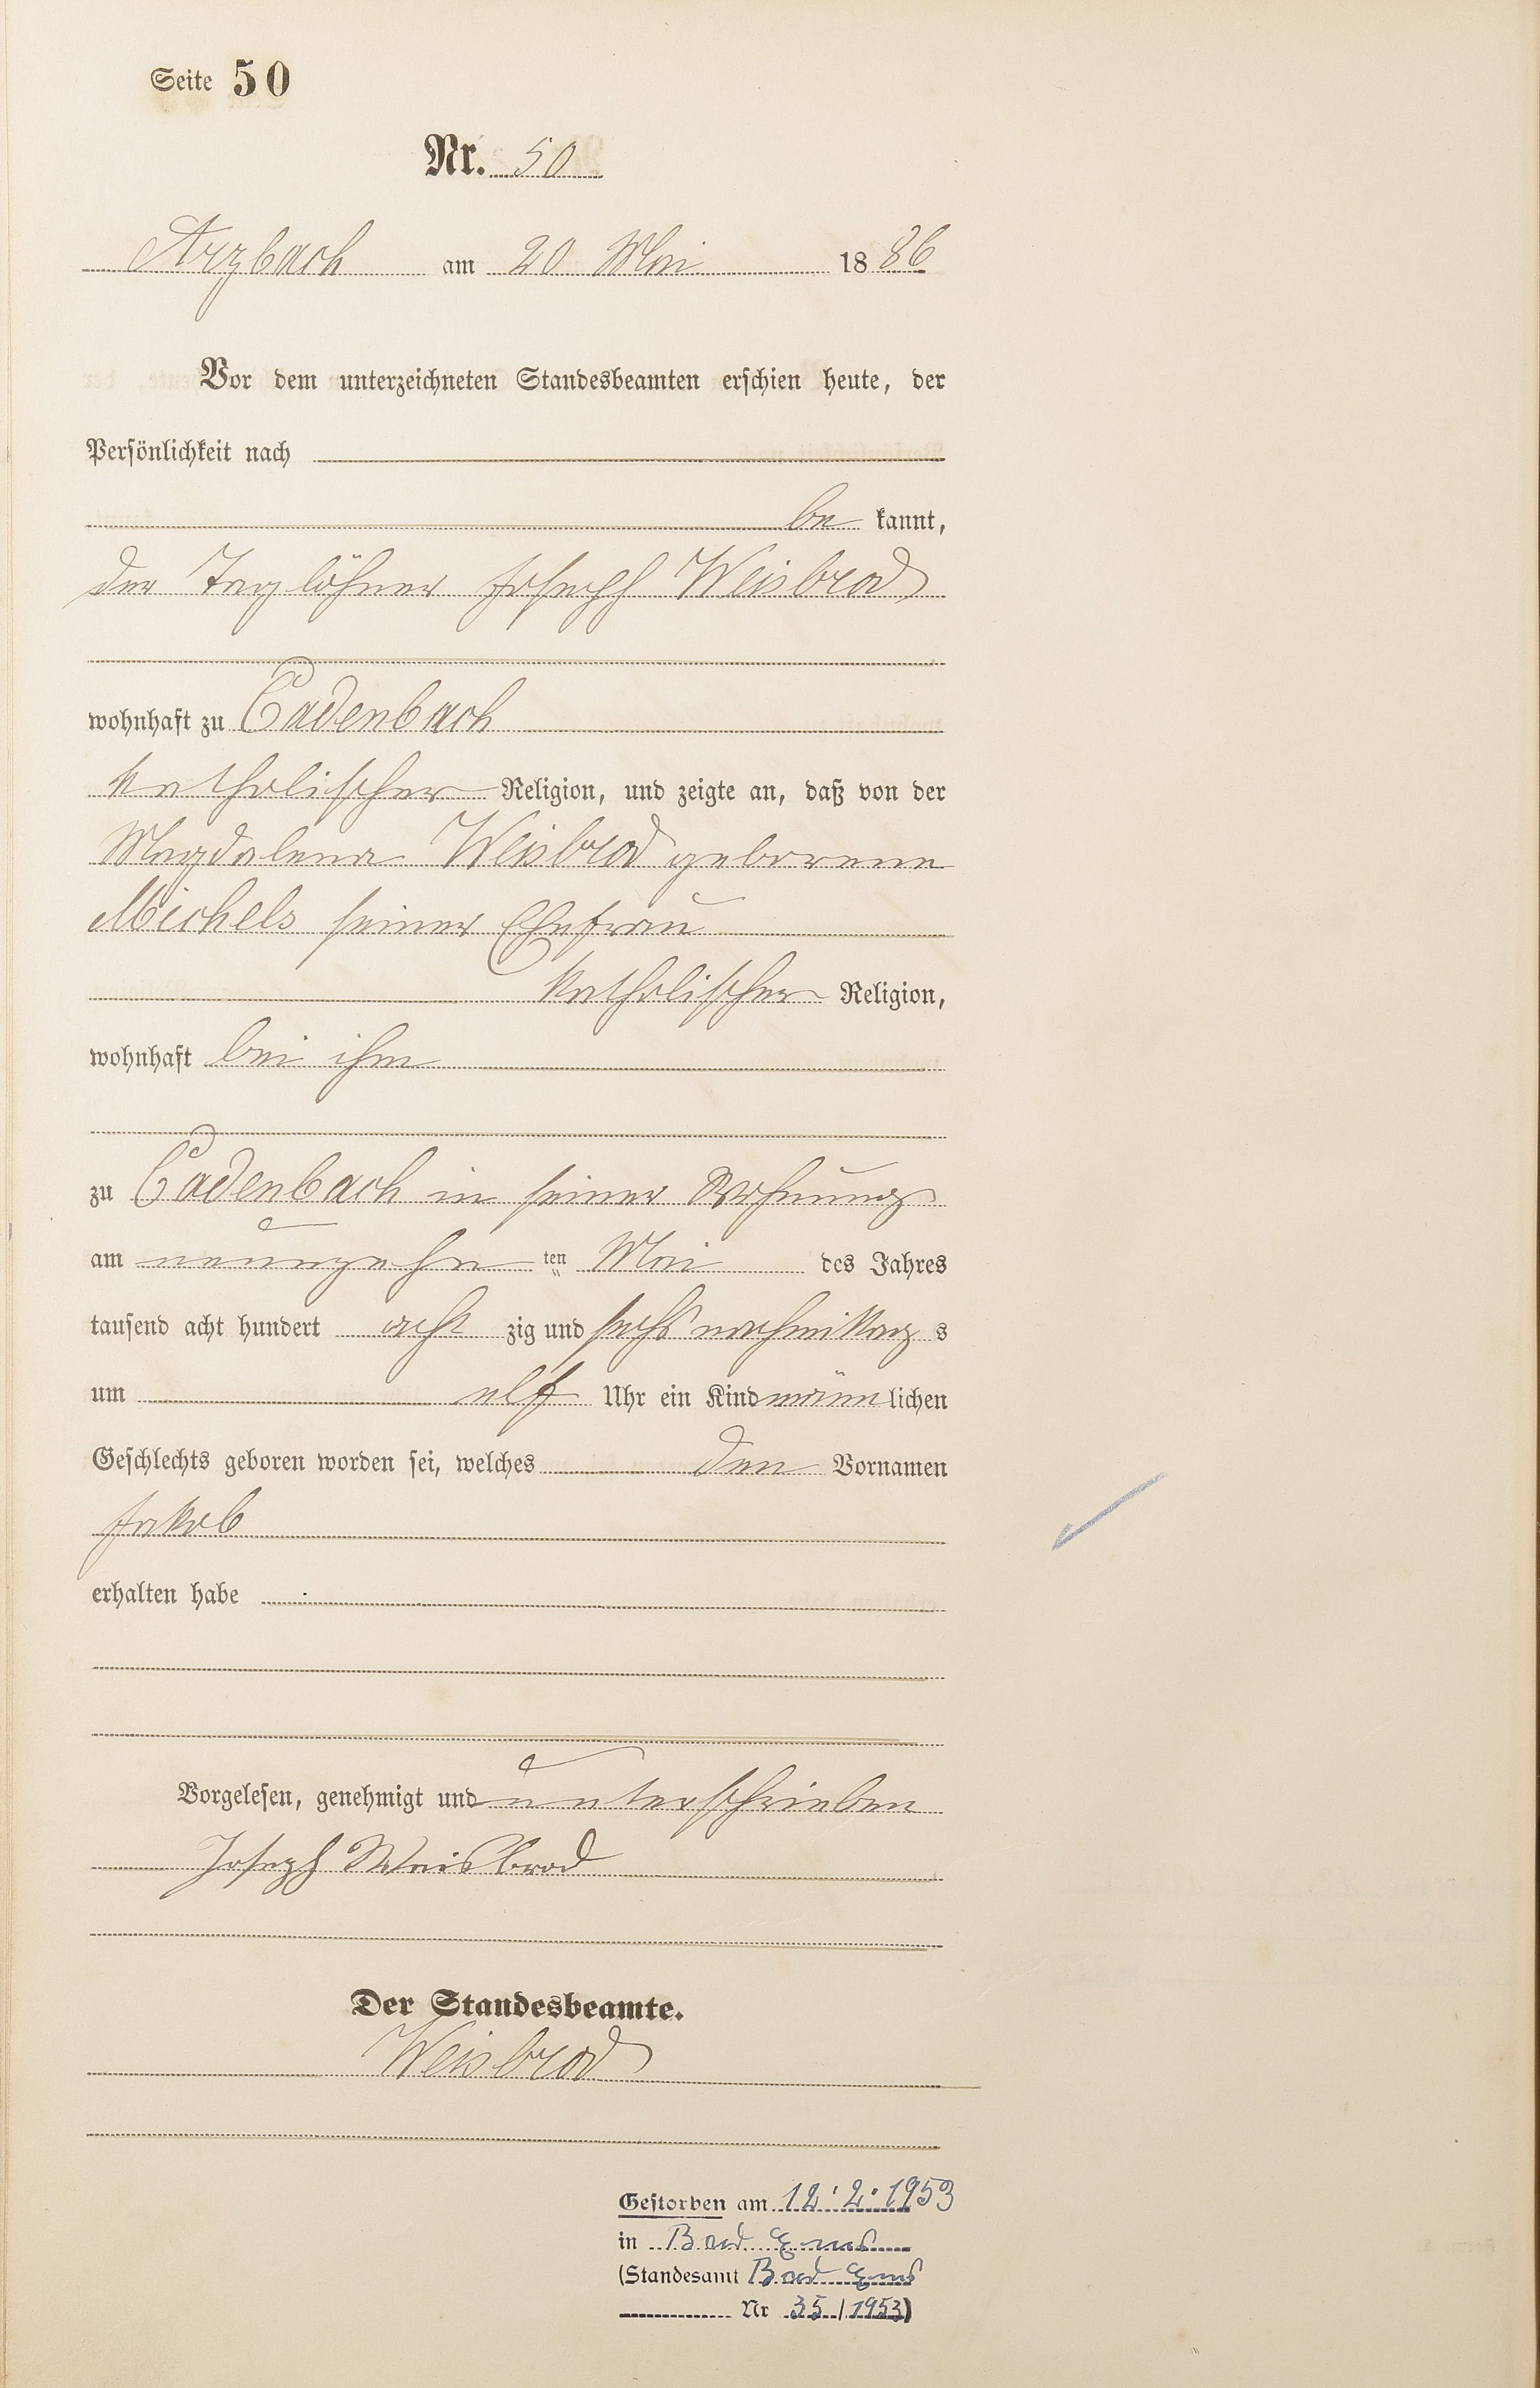 Seite 50
Nr. 50
Arzbach am 20 Mai 1886
Vor dem unterzeichneten Standesbeamten erschien heute, der
Persönlichkeit nach
be kannt,
der Taglöhner Joseph Weisbrod
wohnhaft zu Cadenbach
katholischer Religion, und zeigte an, daß von der
Magdalena Weisbrod geborene
Michels seiner Ehefrau
katholischer Religion,
wohnhaft bei ihm
zu Cadenbach in seiner Wohnung
am neunzehn ten Mai des Jahres
tausend acht hundert acht zig und sechs nachmittags
um elf Uhr ein Kind männlichen
Geschlechts geboren worden sei, welches den Vornamen
Jakob
erhalten habe
Vorgelesen, genehmigt und unterschrieben
Joseph Weisbrod
Der Standesbeamte.
Weisbrod
Gestorben am 12.2.1953
in Bad Ems
(Standesamt Bad Ems
Nr 35/1953)